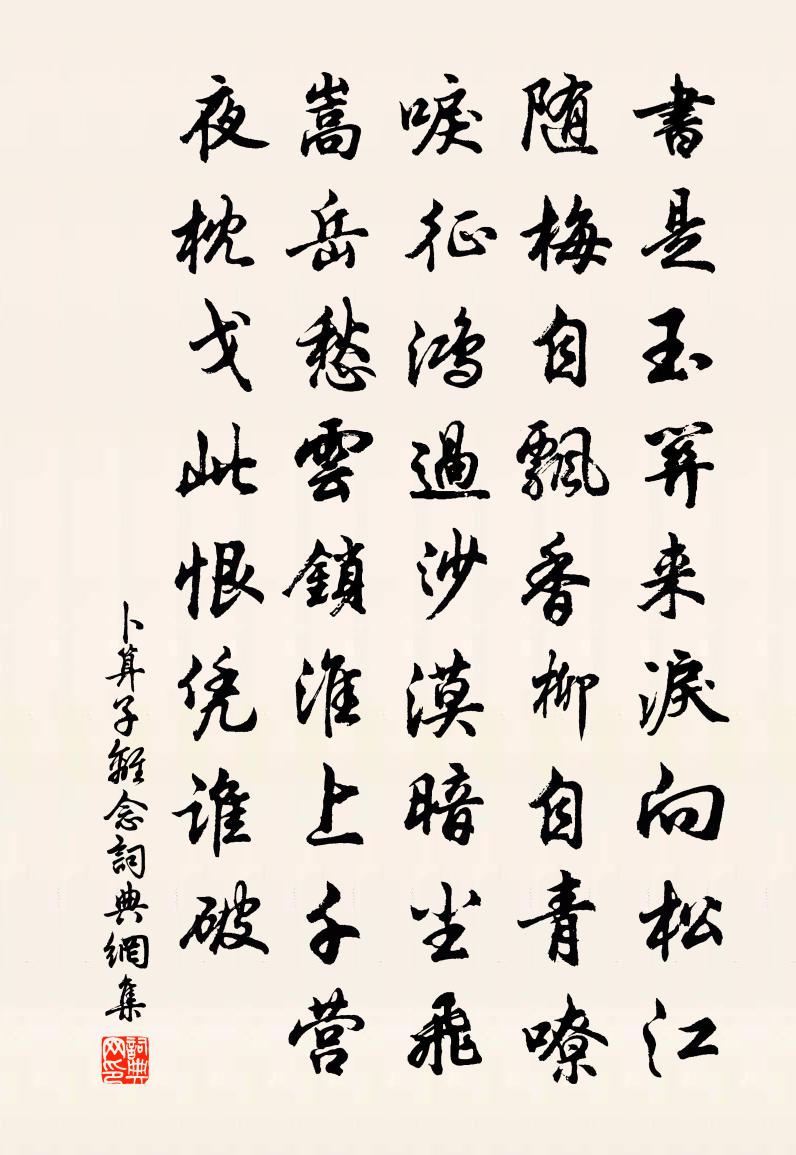 書是玉关来淚向松江
随梅自飄香柳自青嘹
唳征鴻過沙漠暗尘飛
嵩岳愁雲鎖淮上千营
夜枕戈此恨凭誰破
卜算子離念詞典網集
詞典网印